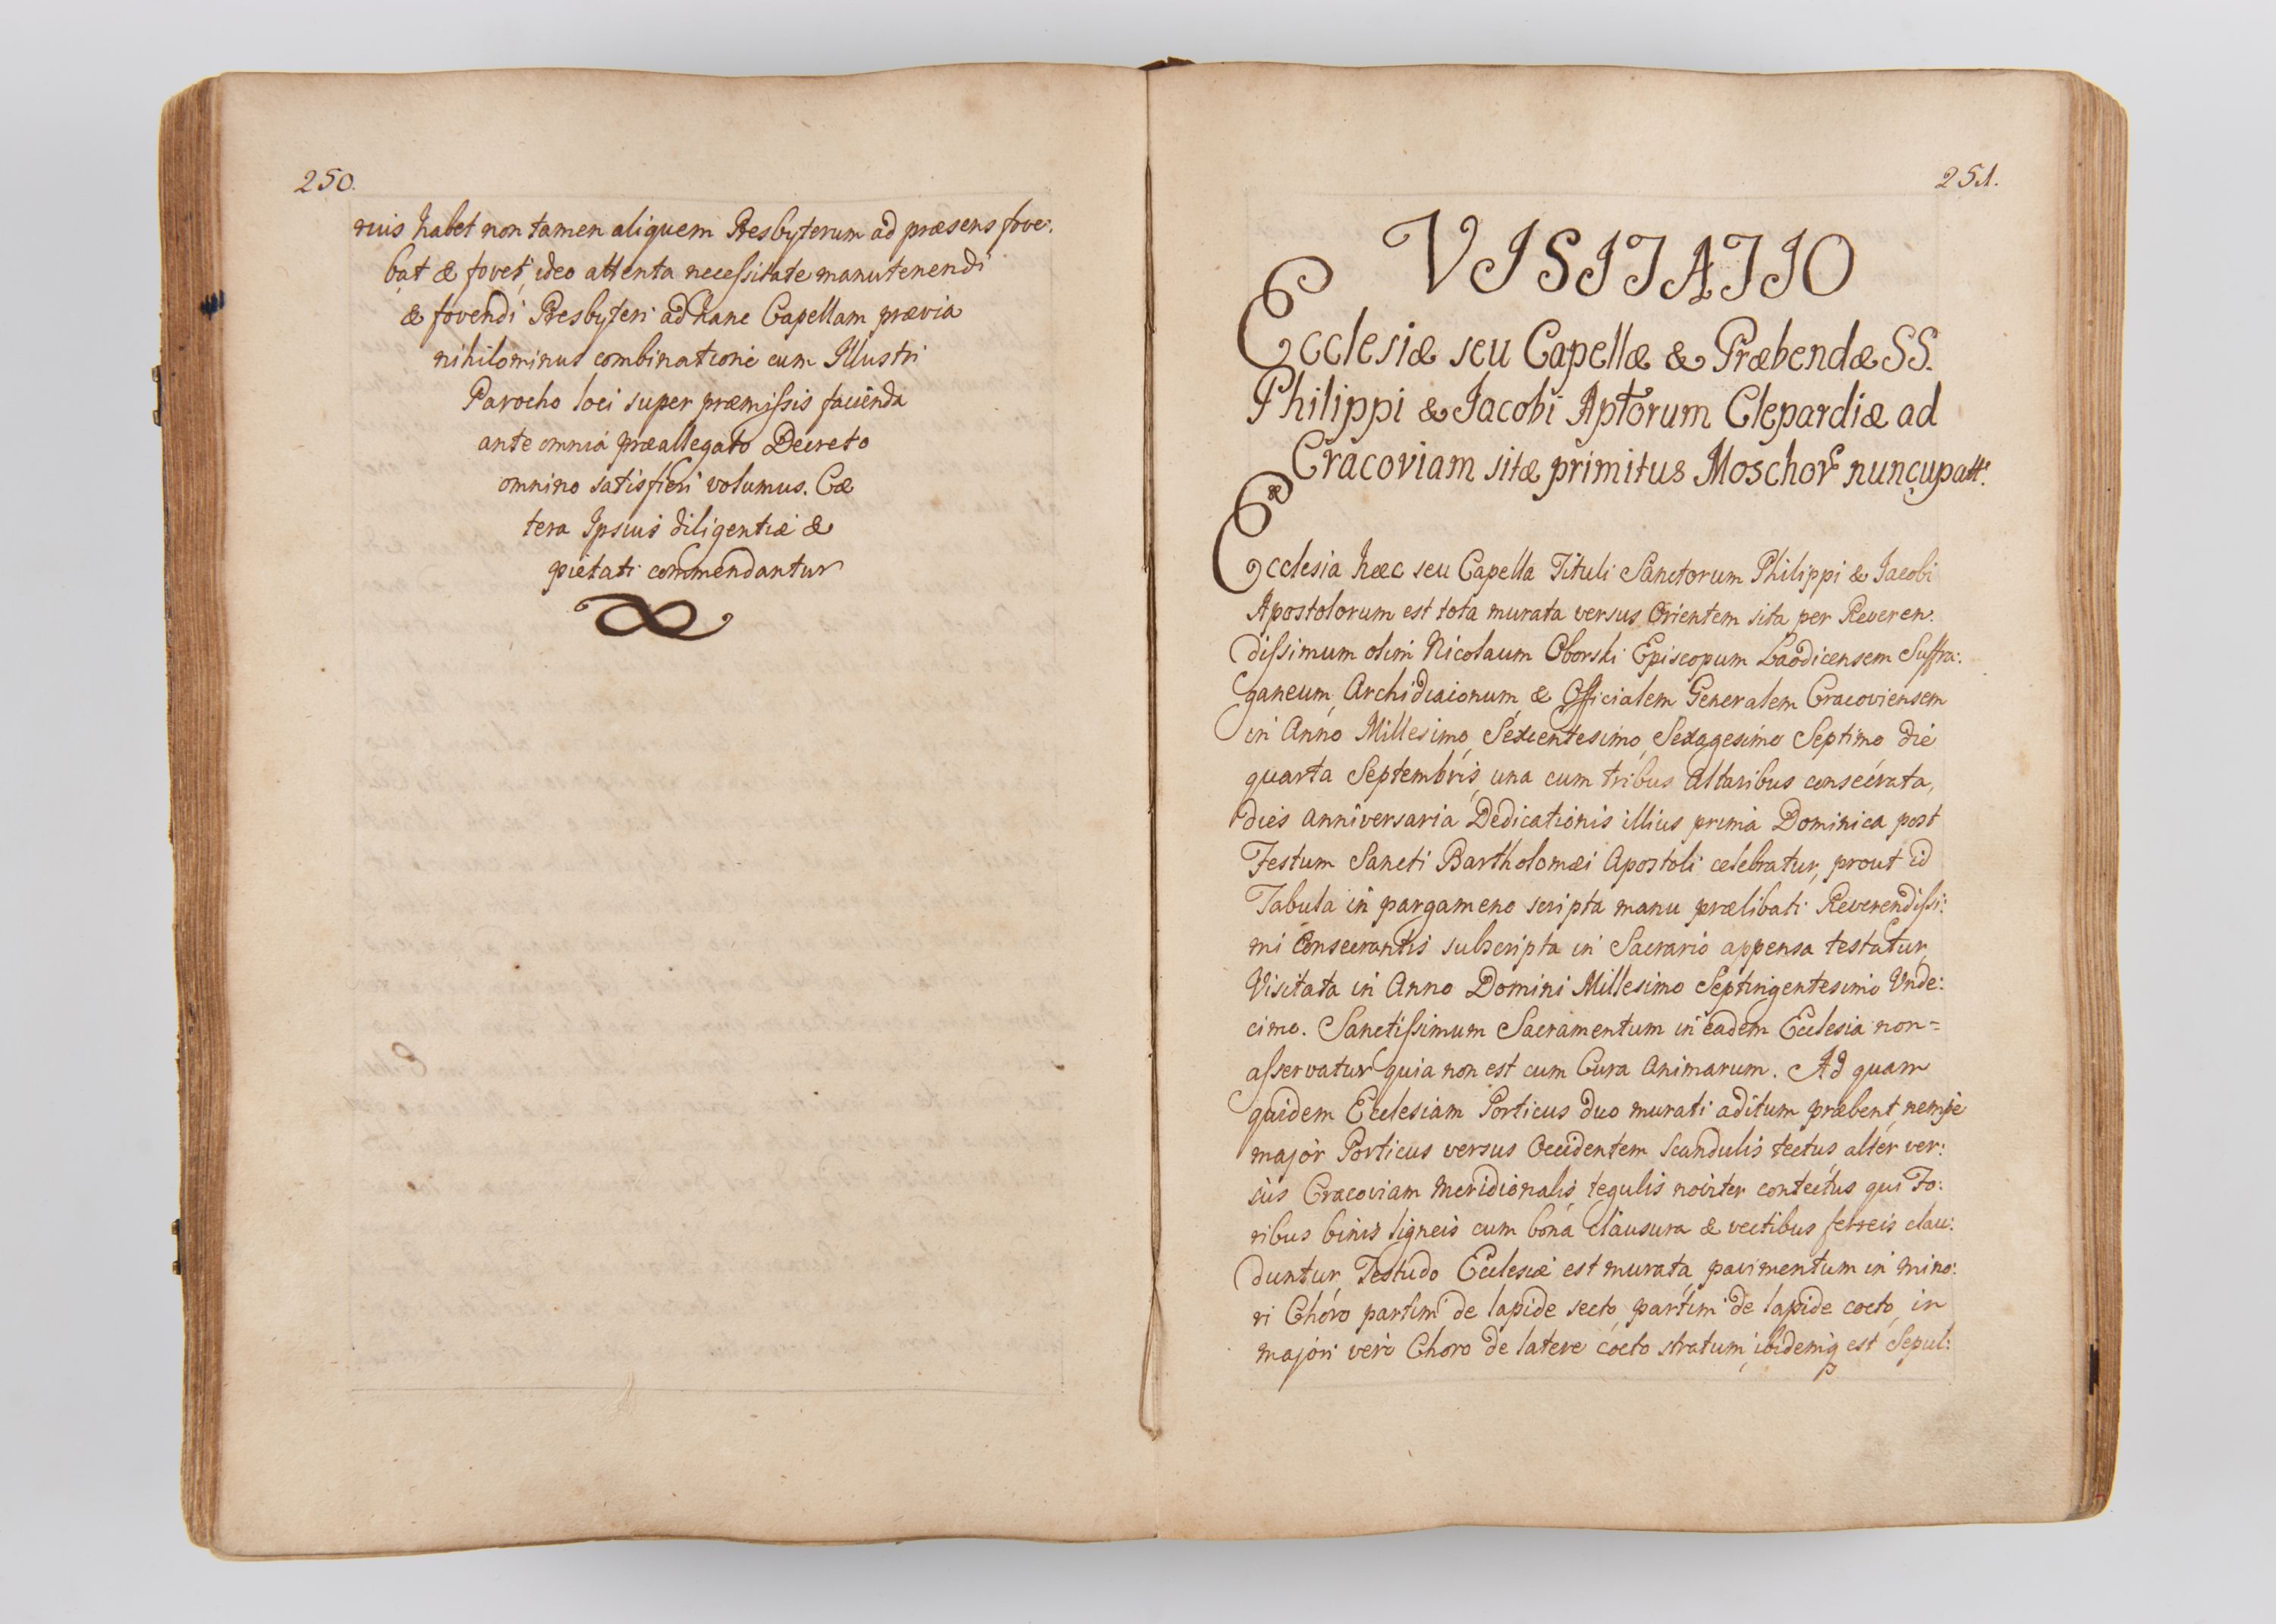 250.
ruis habet non tamen aliquem Presbyterum ad præsens fove:
bat & fovet, ideo attenta necessitate manutenendi
& fovendi Presbyteri ad hanc Capellam prævia
nihilominus combinatione cum Illustri
Parocho loci super præmissis facienda
ante omnia præallegato Decreto
omnino satisfieri volumus. Cæ
tera Ipsius diligentiæ &
pietati commendantur
251.
VISITATIO
Ecclesiæ seu Capellæ & Præbendæ SS.
Philippi & Jacobi Aptorum Clepardiæ ad
Cracoviam sitæ primitus Moschor nuncupatæ.
Ecclesia hæc seu Capella Tituli Sanctorum Philippi & Jacobi
Apostolorum est tota murata versus Orientem sita per Reveren:
dissimum olim Nicolaum Oborski Episcopum Laodicensem Suffra:
ganeum, Archidiaconum, & Officialem Generalem Cracoviensem
in Anno Millesimo, Sexcentesimo, Sexagesimo Septimo die
quarta Septembris, una cum tribus Altaribus consecrata,
dies anniversaria Dedicationis illius prima Dominica post
Festum Sancti Bartholomæi Apostoli celebratur, prout id
Tabula in pargameno scripta manu prælibati Reverendissi:
mi Consecrantis subscripta in Sacrario appensa testatur,
Visitata in Anno Domini Millesimo Septingentesimo Unde:
cimo. Sanctissimum Sacramentum in eadem Ecclesia non=
asservatur quia non est cum Cura Animarum. Ad quam
quidem Ecclesiam Porticus duo murati aditum præbent, nempe
major Porticus versus Occidentem scandulis tectus alter ver:
sus Cracoviam Meridionalis, tegulis noviter contectus qui Fo:
ribus binis ligneis cum bona clausura & vectibus ferreis clau:
duntur, Testudo Ecclesiæ est murata, pavimentum in mino:
ri Choro partim de lapide secto, partim de lapide cocto, in
majori vero Choro de latere cocto stratum, ibidemq est Sepul: